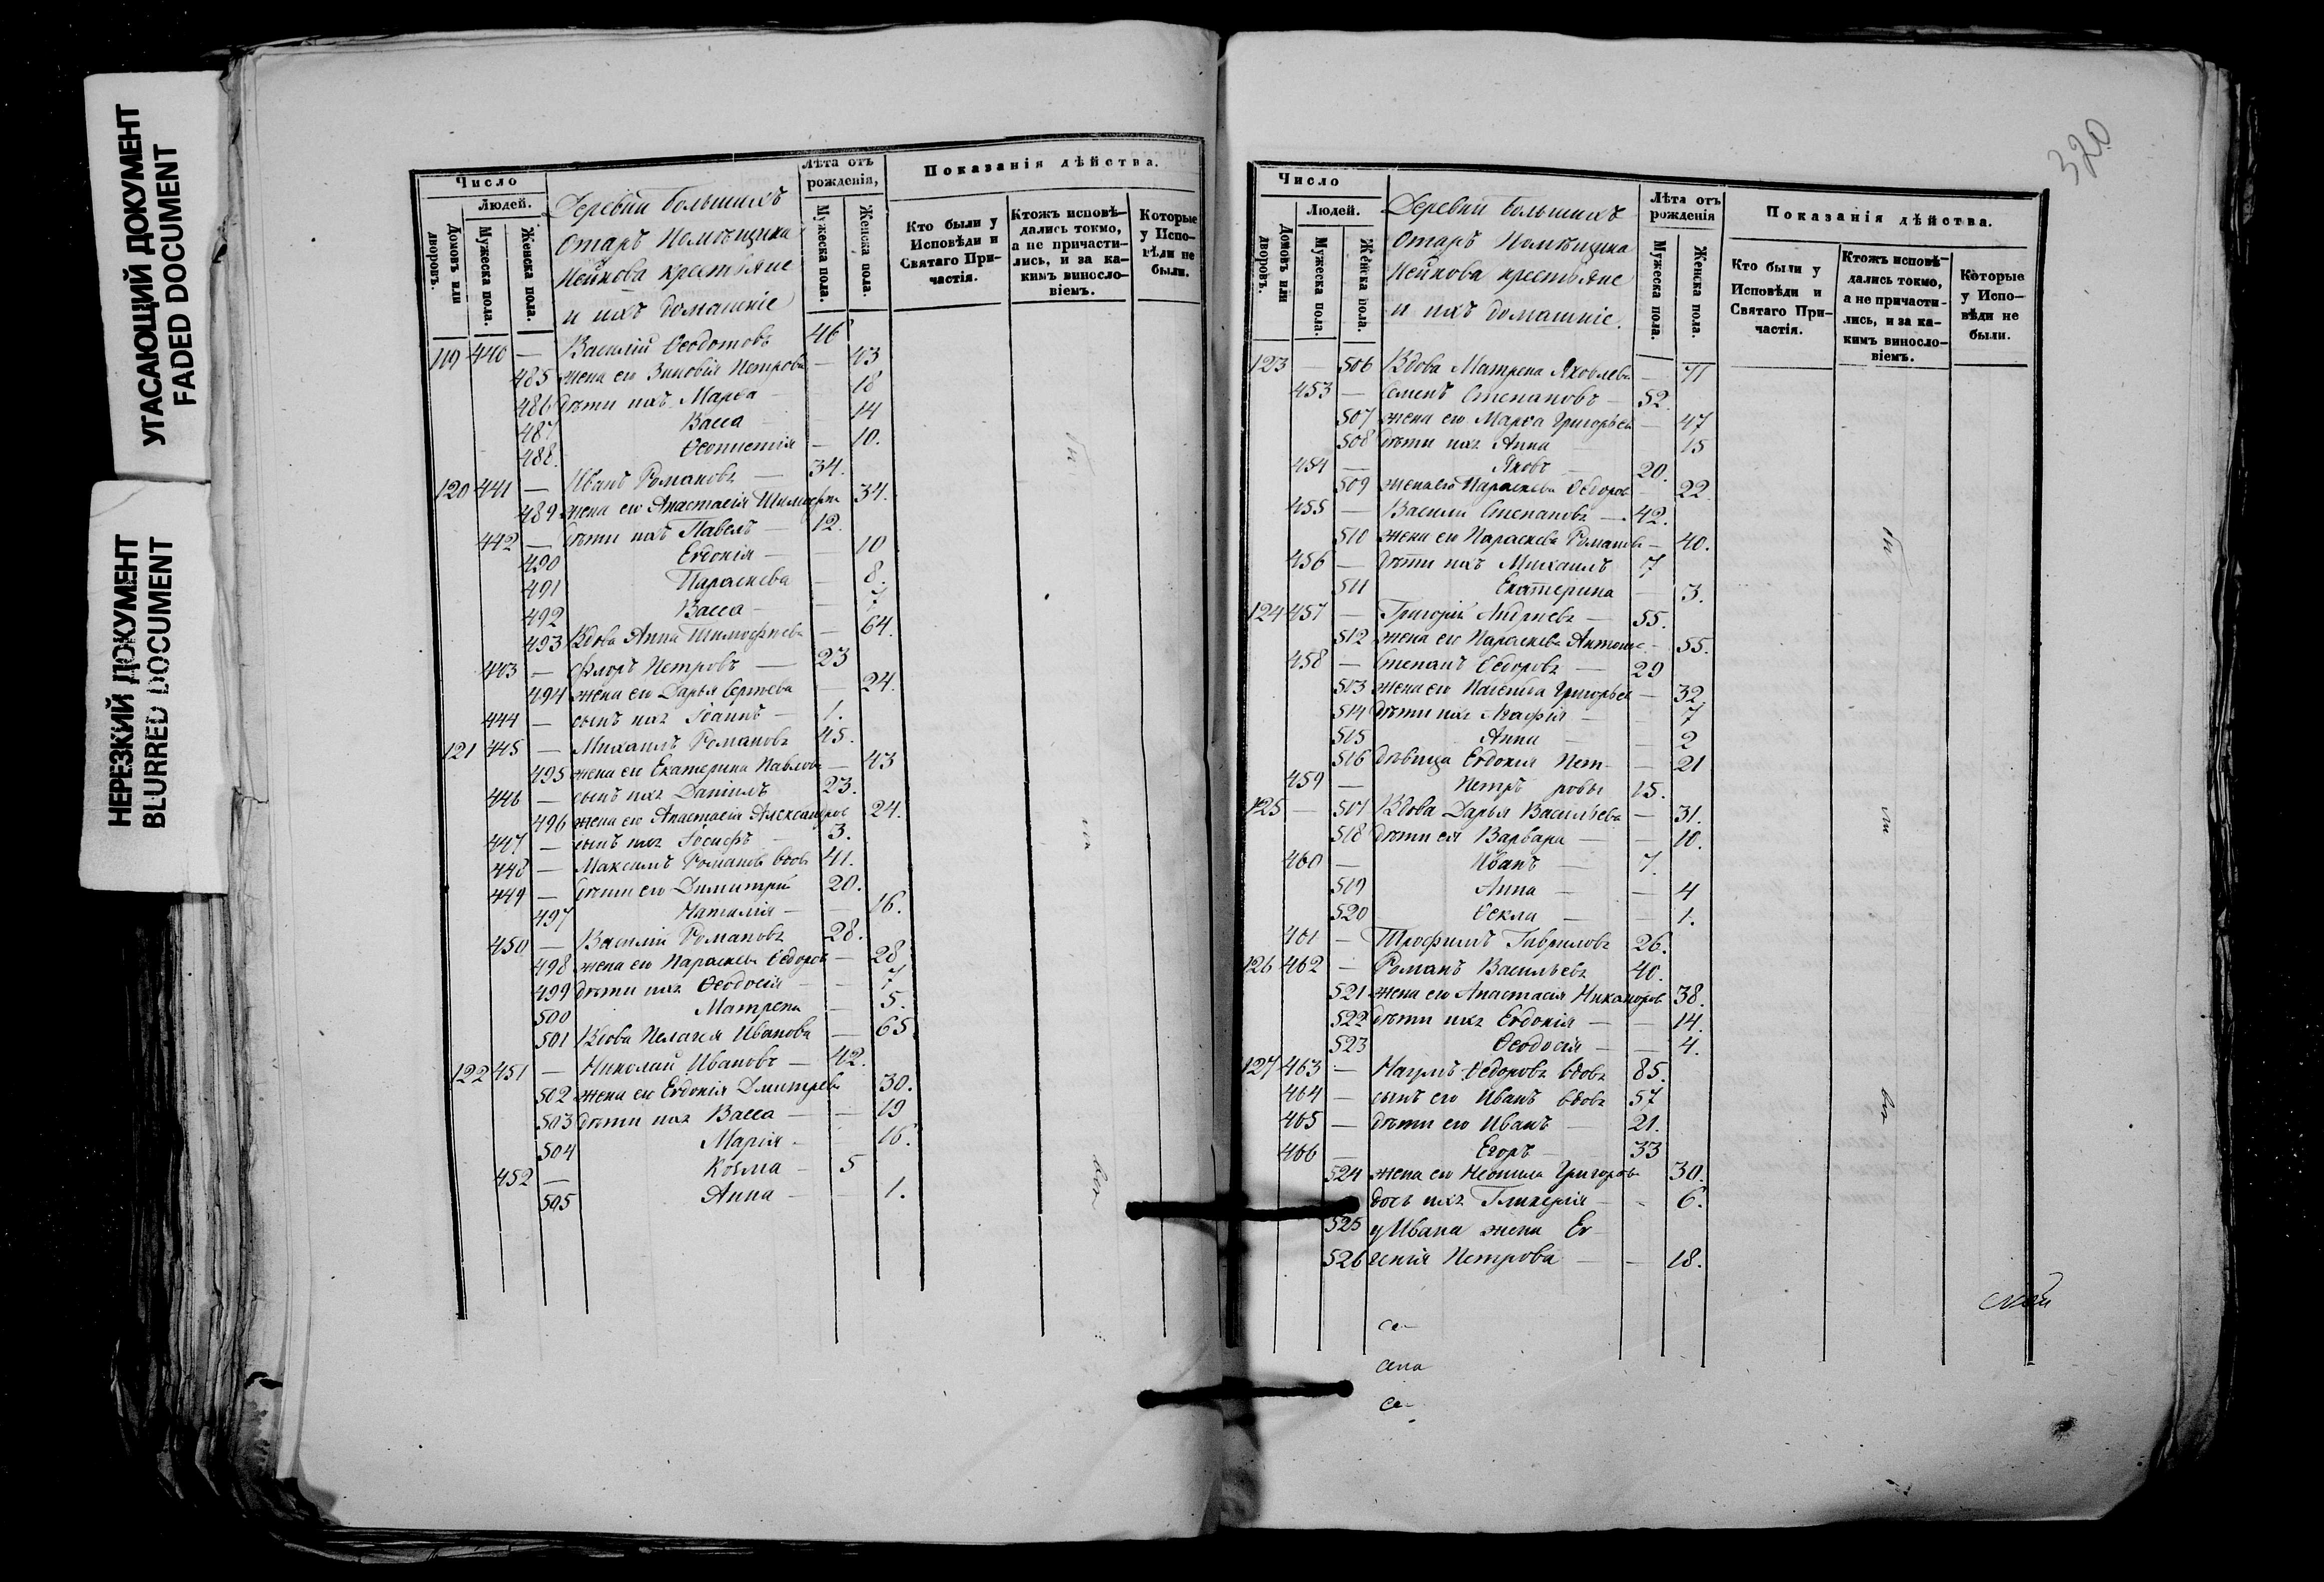 УГАСАЮЩИЙ ДОКУМЕНТ
FADED DOCUMENT
НЕРЕЗКИЙ ДОКУМЕНТ
BLURRED DOCUMENT
Число
Людей.
Домовъ или дворовъ.
Мужеска пола.
Женска пола.
Деревни большихъ
Отаръ Помѣщика
Нейкова крестьяне
и ихъ домашніе
Лѣта отъ рожденія,
Мужеска пола.
Женска пола.
Показанія дѣйства.
Кто были у Исповѣди и Святаго Причастія.
Ктожъ исповѣдались токмо, а не причастились, и за какимъ винословіемъ.
Которые у Исповѣди не были.
119 440 — Василій Ѳедотовъ 46
485 жена его Зиновія Петрова — 43
486 дѣти ихъ Марѳа — 18
487 Васса 14
488. Ѳеопистія — 10.
120 441 — Иванъ Романовъ — 34.
489 жена его Анастасія Тимоѳѣе 34.
442 — дѣти ихъ Павелъ — 12.
490 Евдокія — 10
491 Параскева — 8.
492 Васса — 7
493 Вдова Анна Тимоѳѣева — 64.
443 — Флоръ Петровъ — 23
494 жена его Дарья Сергѣева — 24.
444 — сынъ ихъ Іоаннъ — 1.
121 445 — Михаилъ Романовъ 45.
495 жена его Екатерина Павлова — 43
446 — сынъ ихъ Даніилъ 23.
496 жена его Анастасія Александров 24.
447 — сынъ ихъ Іосифъ — 3.
448 — Максимъ Романовъ вдов 41.
449 — дѣти его Димитрій 20.
497 Наталія — — 16.
450 — Василій Романовъ 28.
498 жена его Параскева Ѳедоров — 28
499 дѣти ихъ Ѳеодосія — — 7
500 Матрена — 5.
501 Вдова Пелагея Иванова — 65
122 451 — Николай Ивановъ — 42.
502 жена его Евдокія Дмитрев 30.
503 дѣти ихъ Васса — — 19
504 Марія — 16.
452 — Козма — 5
505 Анна — 1.
320
Число
Людей.
Домовъ или дворовъ.
Мужеска пола.
Женска пола.
Деревни большихъ
Отаръ Помѣщика
Нейкова крестьяне
и ихъ домашніе.
Лѣта отъ рожденія
Мужеска пола.
Женска пола.
Показанія дѣйства.
Кто были у Исповѣди и Святаго Причастія.
Ктожъ исповѣдались токмо, а не причастились, и за какимъ винословіемъ.
Которые у Исповѣди не были.
123 — 506 Вдова Матрена Яковлева — 71
453 — Семенъ Степановъ — 52.
507 жена его Марѳа Григорьев — 47
508 дѣти ихъ Анна 15
454 — Яковъ — 20.
509 жена его Параскева Ѳедоров 22.
455 — Василій Степановъ — 42.
510 жена его Параскева Романов — 40.
456 — дѣти ихъ Михаилъ 7
511 Екатерина — 3.
124 457 — Григорій Андреевъ — 55.
512 жена его Параскева Антоно — 55.
458 — Степанъ Ѳедоровъ — 29
503 жена его Григорьев — 32
514 дѣти ихъ Агафія — — 7
515 Анна — — 2
516 дѣвица Евдокія Пет- — 21
459 — Петръ ровы 15.
125 — 507 Вдова Дарья Васильева — 31.
518 дѣти ея Варвара — — 10.
460 — Иванъ — 7.
519 Анна — — 4
520 Ѳекла — — 1.
461 — Трофимъ Гавриловъ 26.
126 462 — Романъ Васильевъ 40.
521 жена его Анастасія Никаноров 38.
522 дѣти ихъ Евдокія — — 14.
523 Ѳеодосія — — 4.
127 463 — Наумъ Ѳедоровъ вдовъ 85.
464 — сынъ его Иванъ вдовъ 57
465 — дѣти его Иванъ — 21.
466 — Егоръ — 33
524 жена его Неонила Григоров 30.
дочь ихъ Гликерія — - 6.
525 у Ивана жена Ев-
526 генія Петрова — — 18.